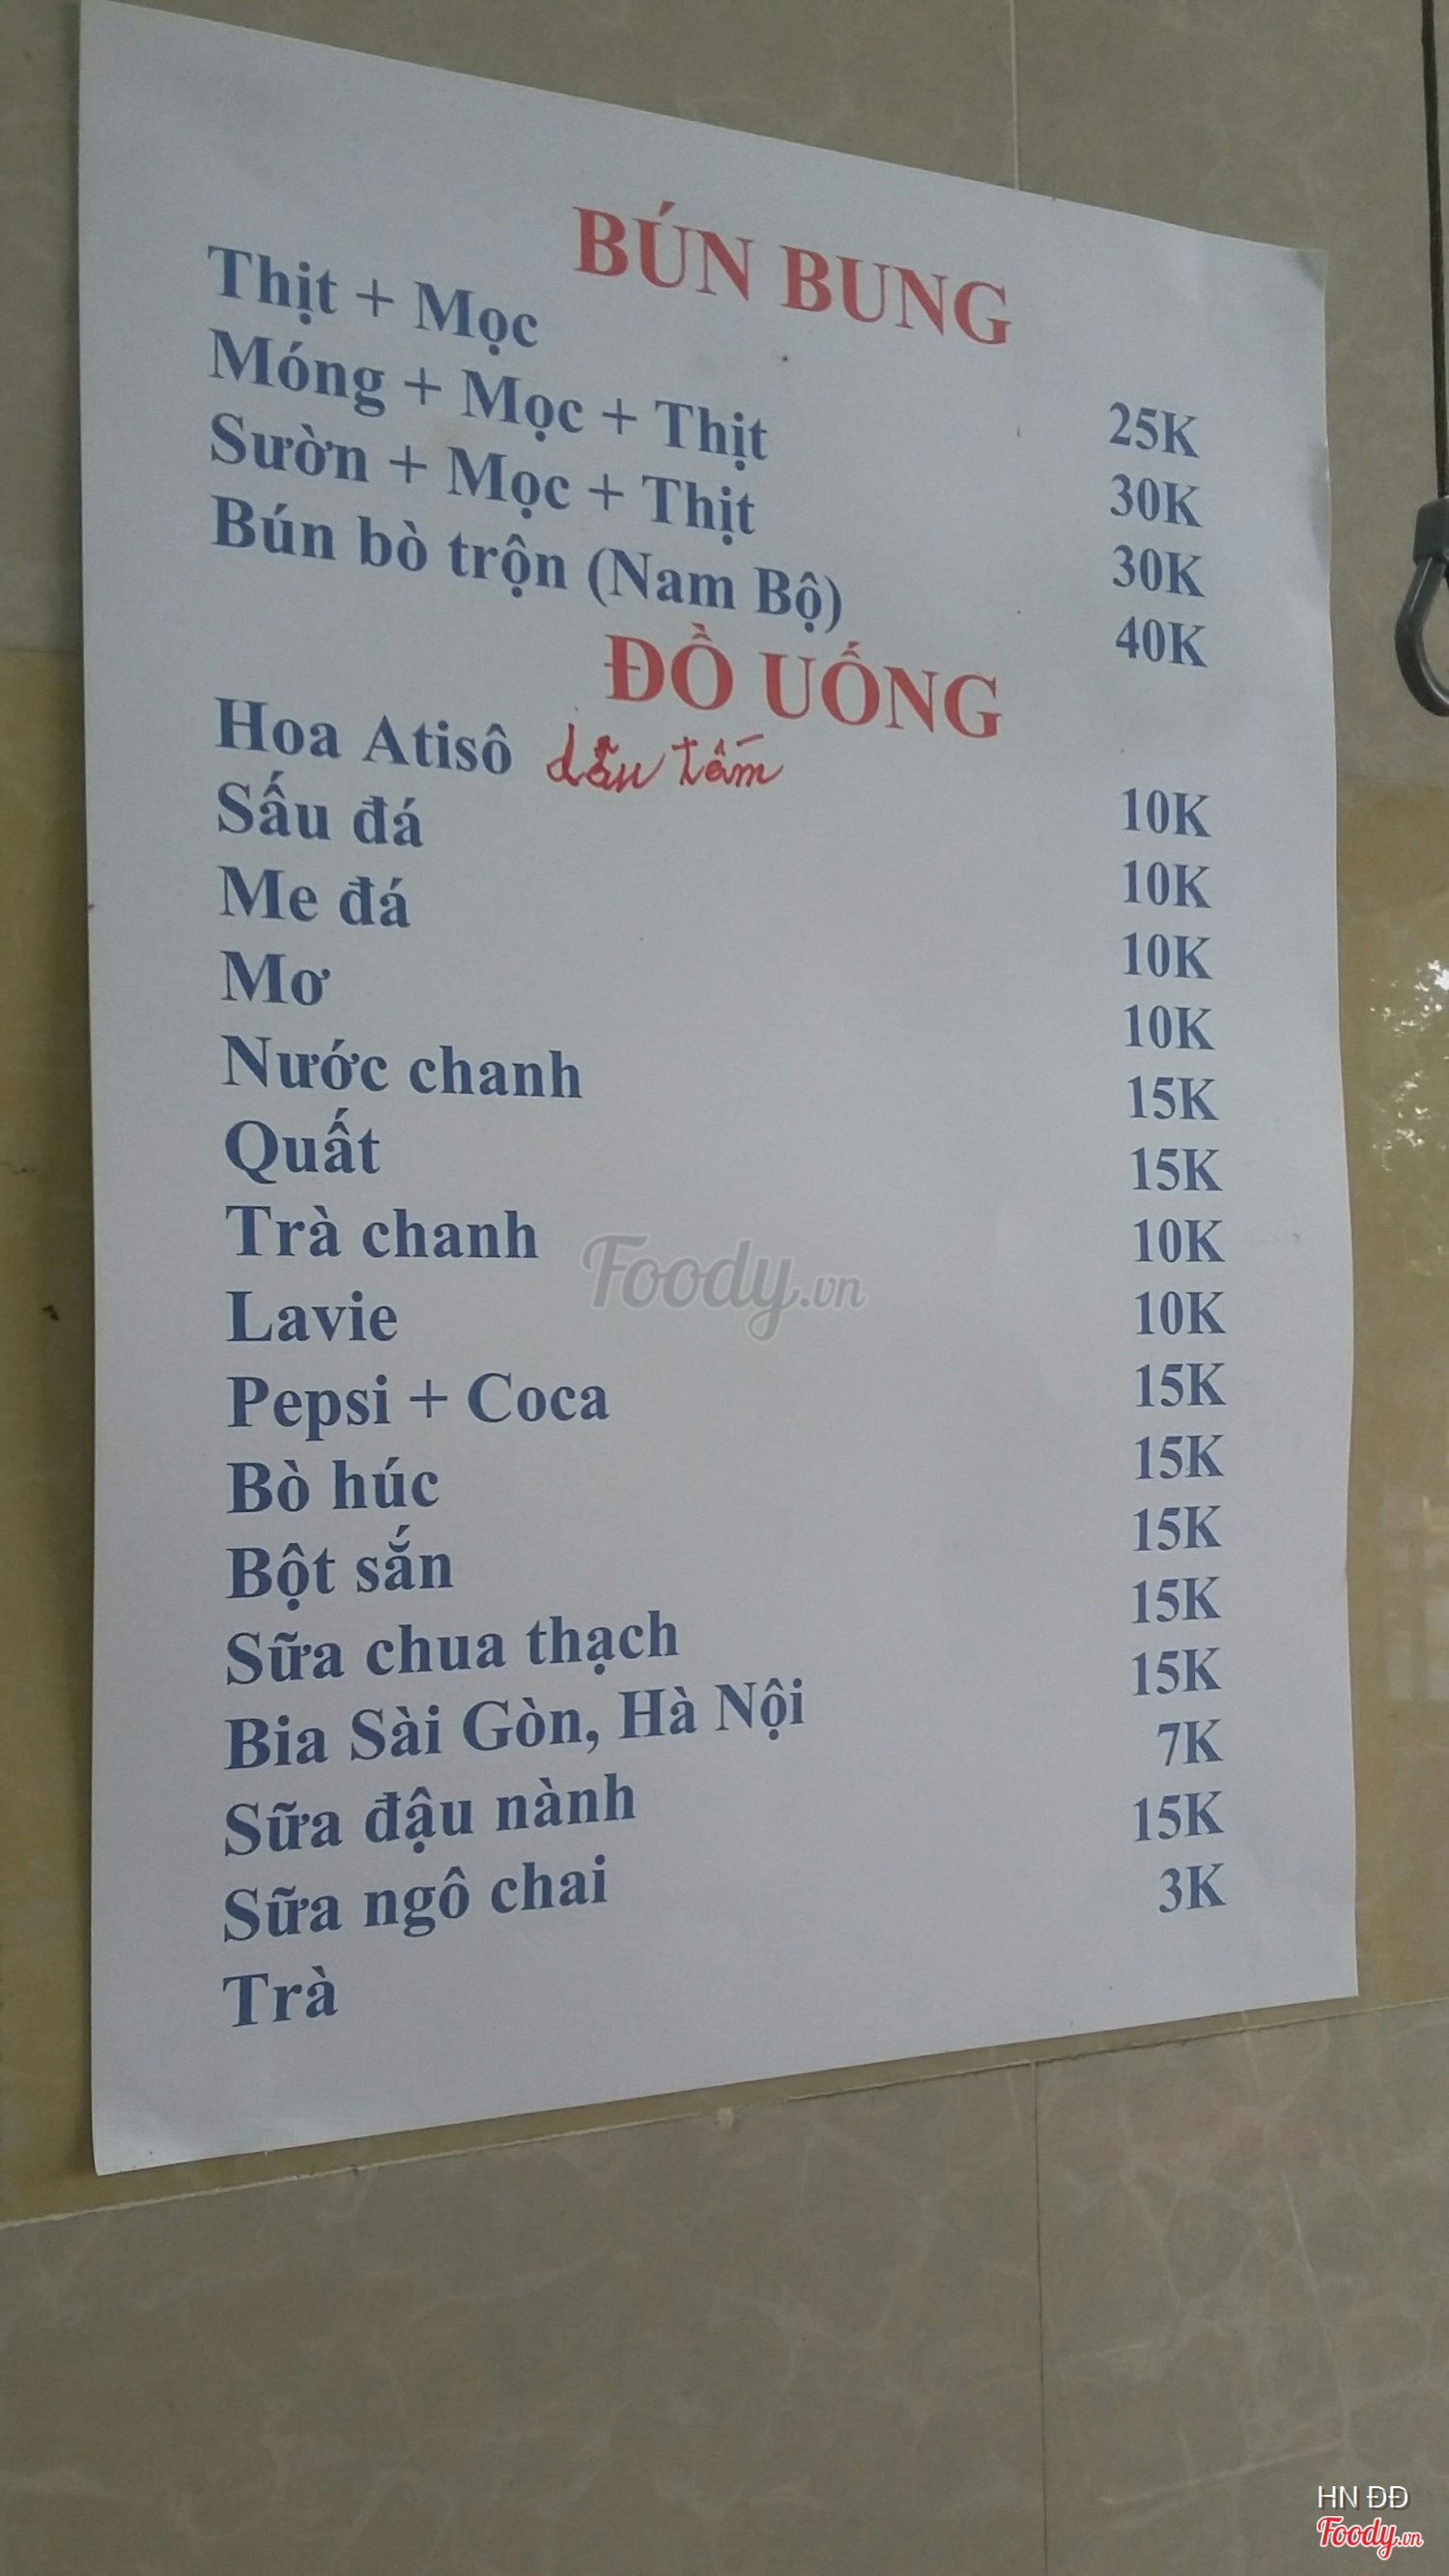 BÚN BUNG
Thịt + Mọc 25K
Móng + Mọc + Thịt 30K
Sườn + Mọc + Thịt 30K
Bún bò trộn (Nam Bộ) 40K
ĐỒ UỐNG
Hoa Atisô dâu tấm 10K
Sấu đá 10K
Me đá 10K
Mơ 10K
Nước chanh 15K
Quất 15K
Trà chanh 10K
Lavie 10K
Pepsi + Coca 15K
Bò húc 15K
Bột sắn 15K
Sữa chua thạch 15K
Bia Sài Gòn, Hà Nội 15K
Sữa đậu nành 7K
Sữa ngô chai 15K
Trà 3K
Foody.vn
HN ĐĐ
Foody.vn